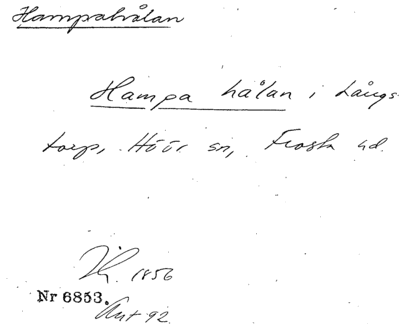 Hampahålan
Hampa hålan i Långs-
torp, Höör sn, Frosta hd.
1856
Nr 6853.
Ant 92.